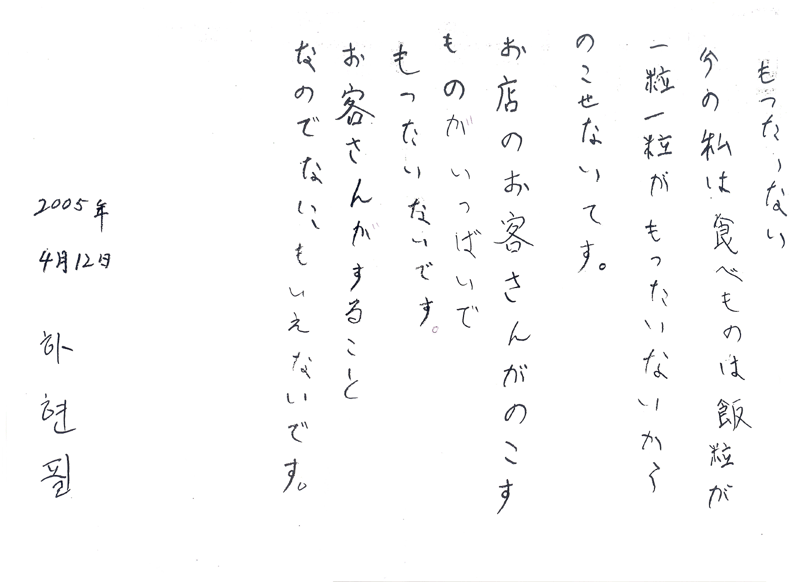 もったいない
今の私は食べものは飯粒が
一粒一粒がもったいないから
のこせないてす。
お店のお客さんがのこす
ものがいっぱいで
もったいないです。
お客さんがすること
なのでない、もいえないです。
2005年
4月12日
하현필